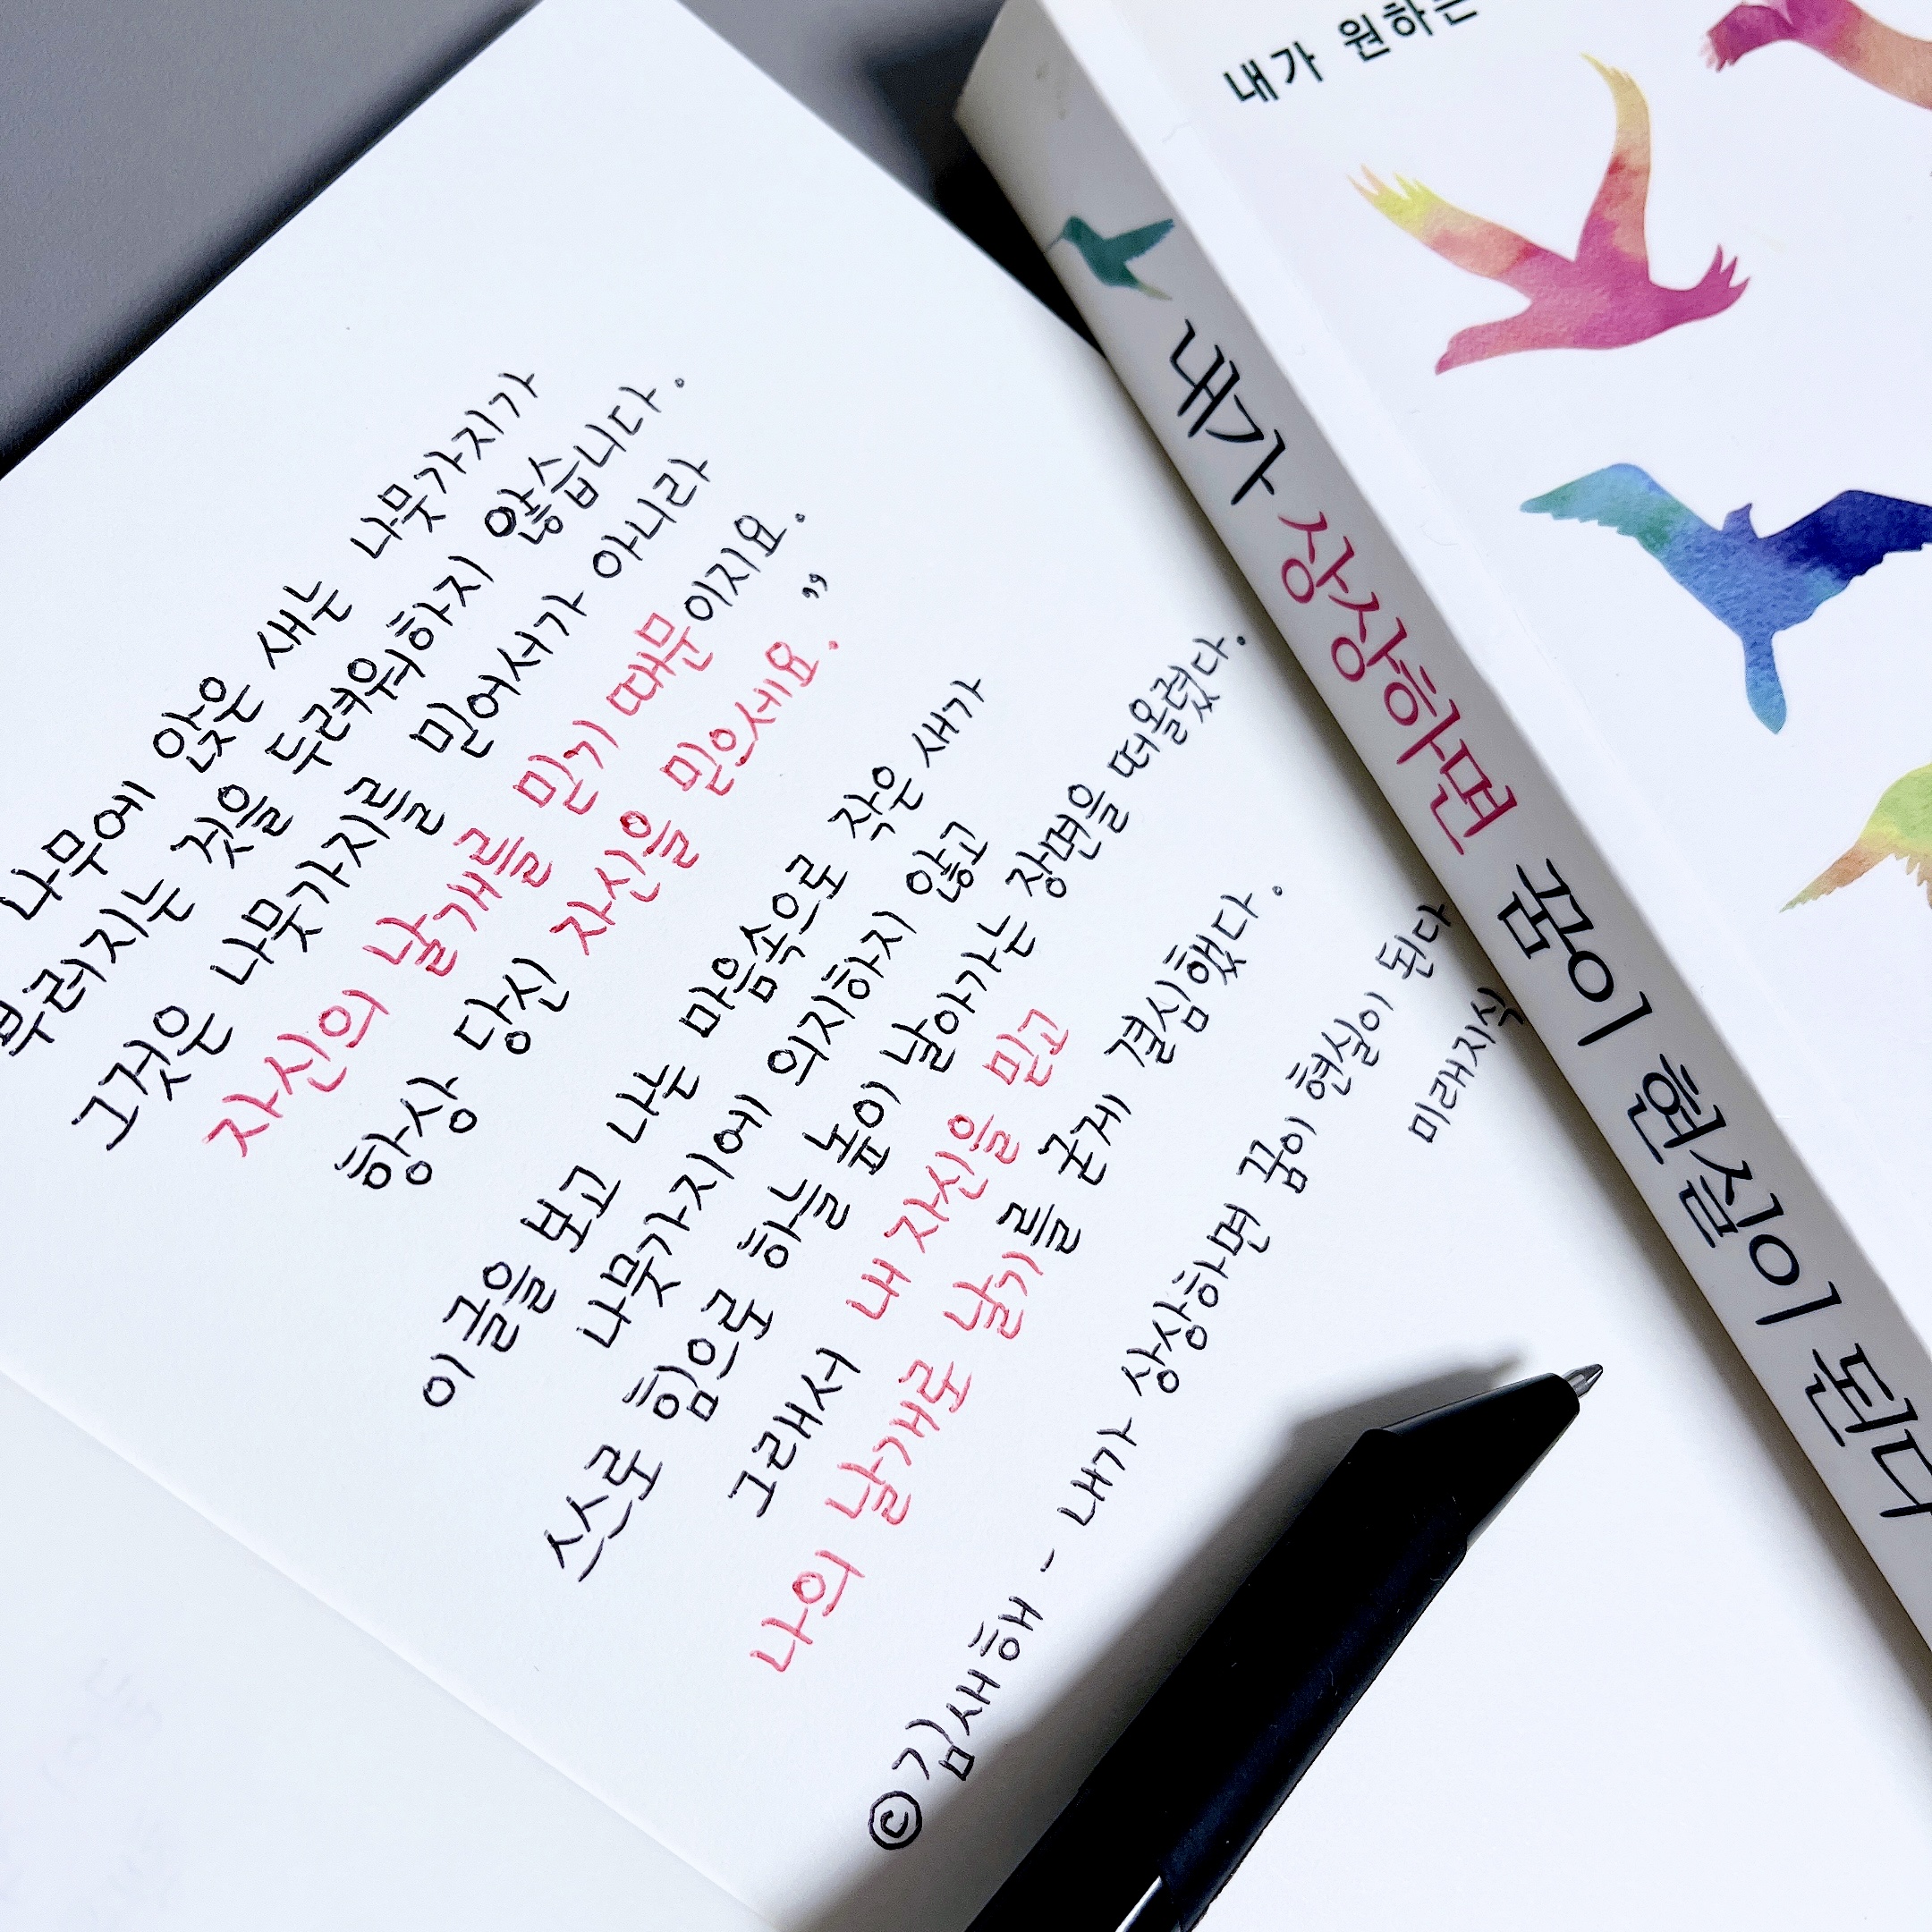 나무에 앉은 새는 나뭇가지가
부러지는 것을 두려워하지 않습니다.
그것은 나뭇가지를 믿어서가 아니라
자신의 날개를 믿기 때문이지요.
항상 당신 자신을 믿으세요.”
이 글을 보고 나는 마음속으로 작은 새가
나뭇가지에 의지하지 않고
스스로 힘으로 하늘 높이 날아가는 장면을 떠올렸다.
그래서 내 자신을 믿고
나의 날개로 날기를 굳게 결심했다.
© 김새해 - 내가 상상하면 꿈이 현실이 된다
미래지식
내가 상상하면 꿈이 현실이 된다
내가 원하는